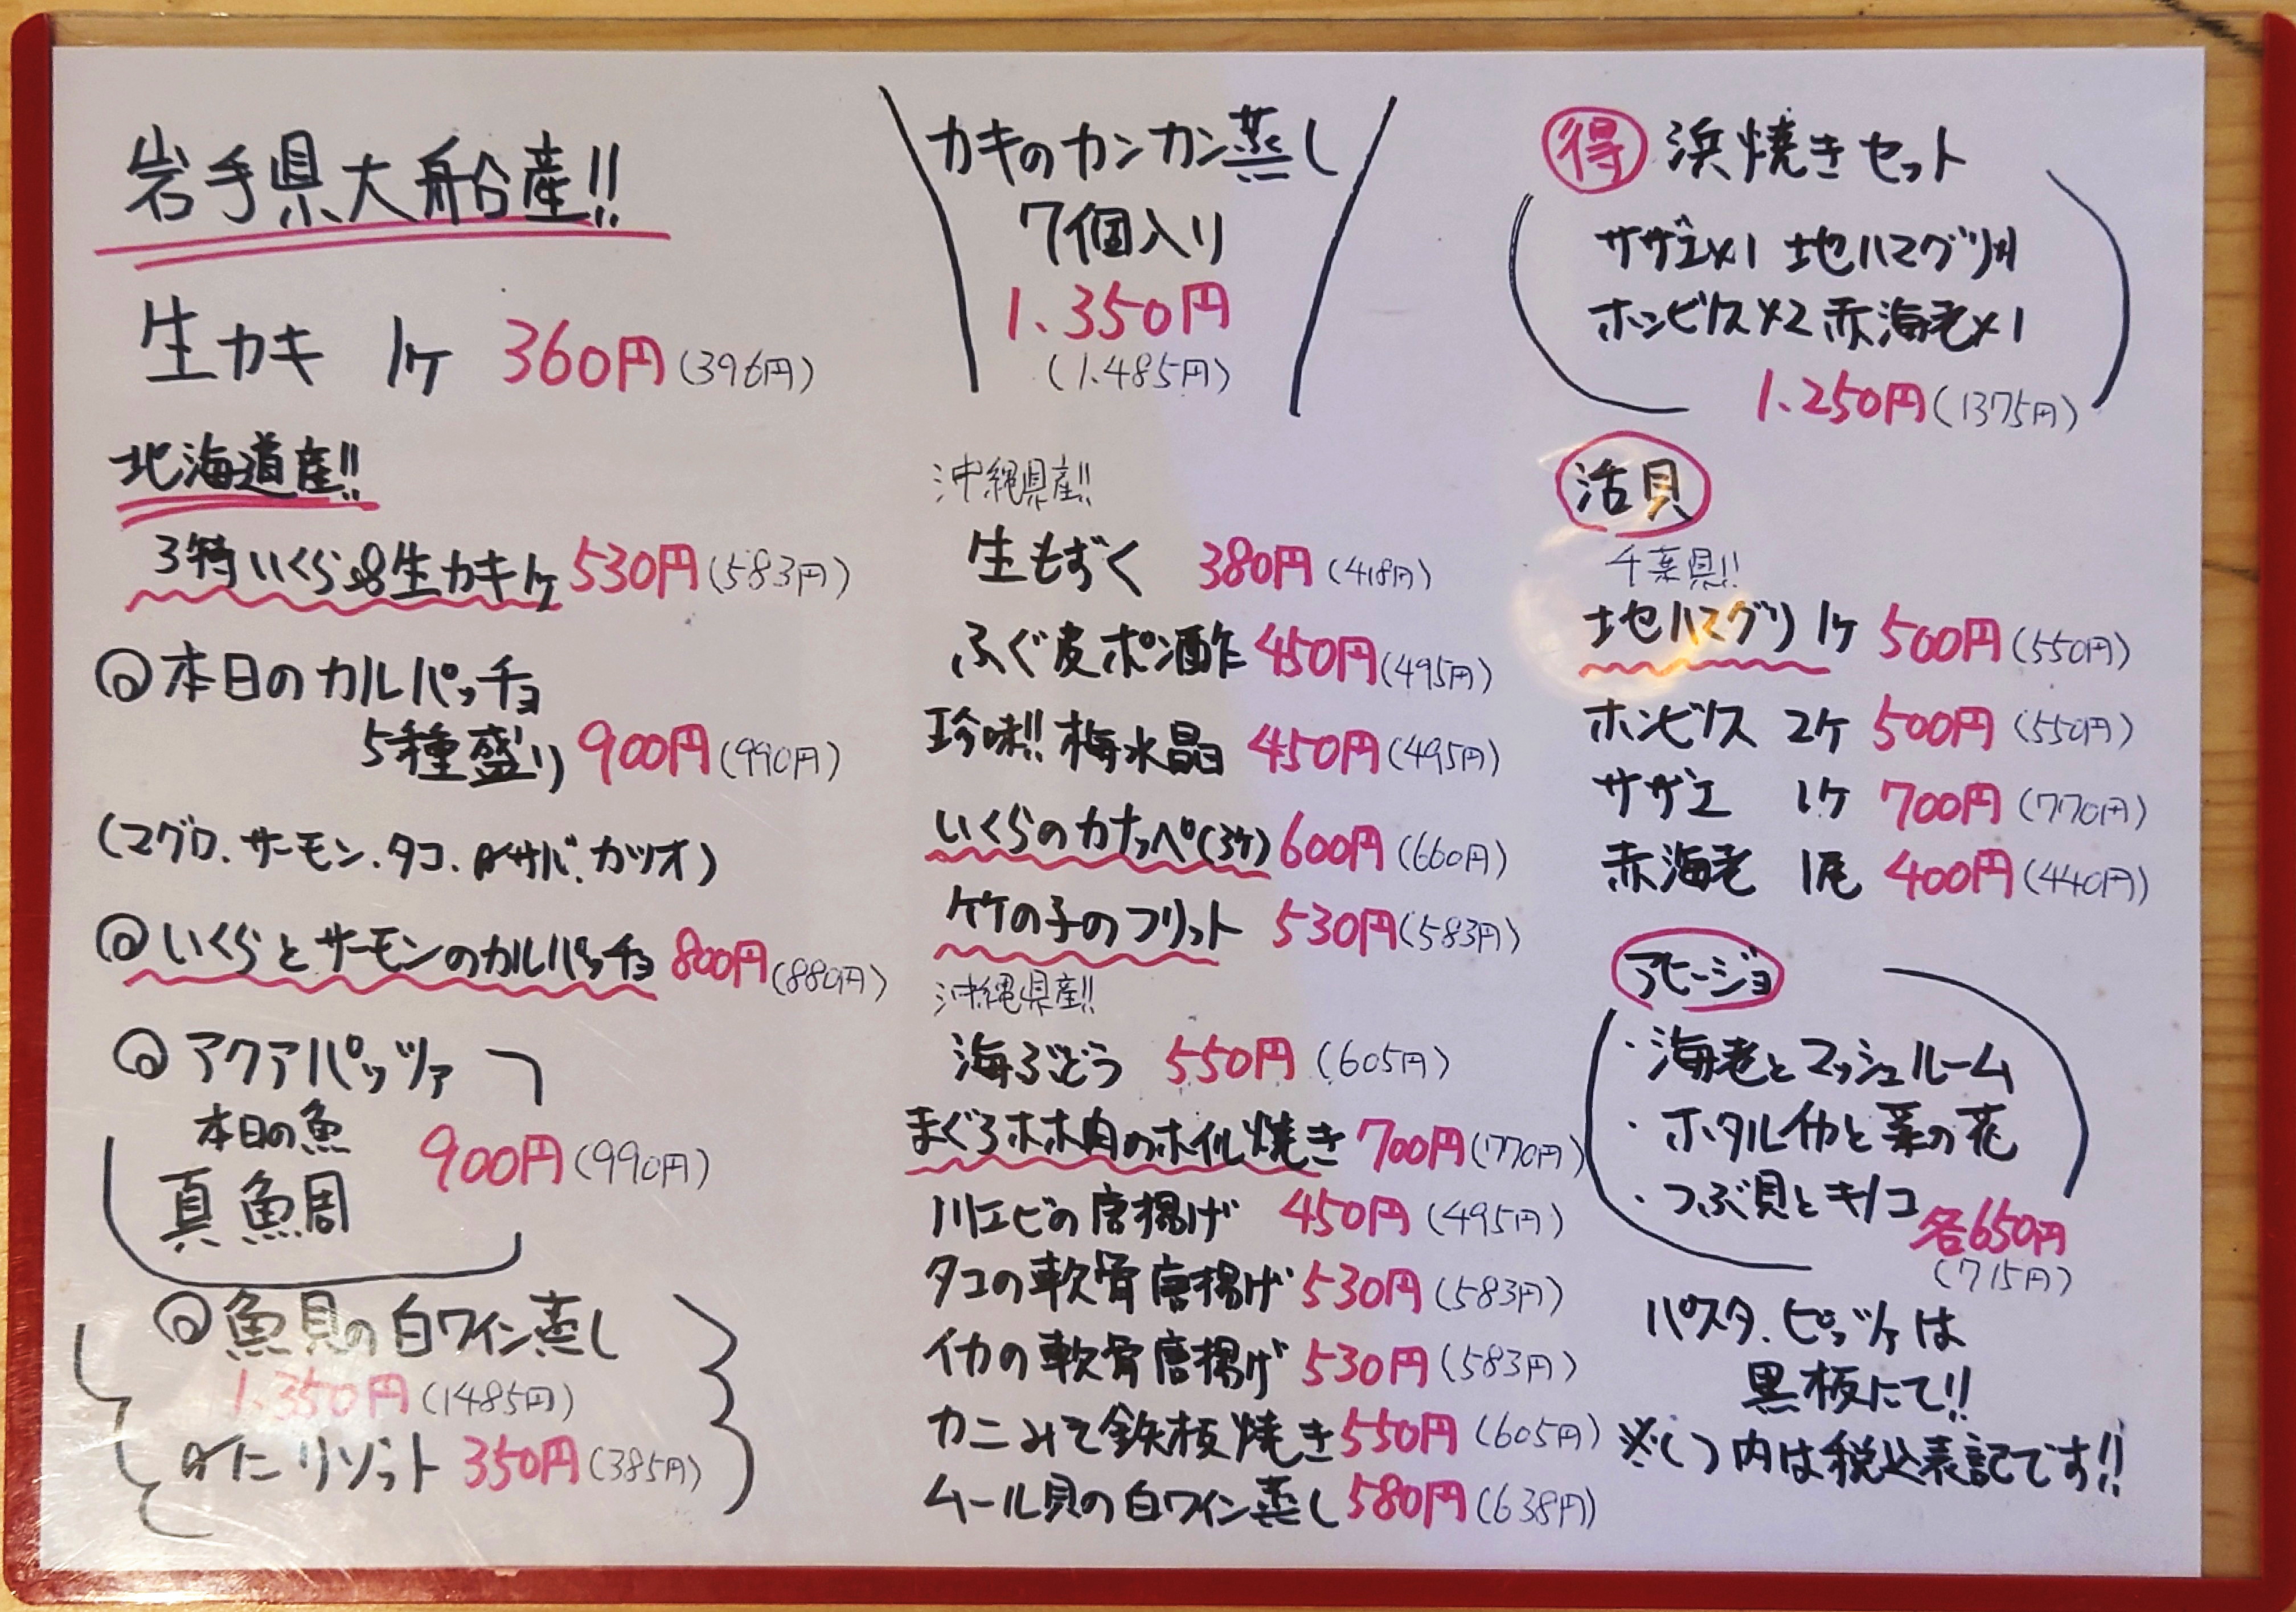 岩手県大船産!!
生カキ 1ヶ 360円(396円)
北海道産!!
3特いくら&生カキ1ヶ 530円(583円)
◎本日のカルパッチョ
5種盛り 900円(990円)
(マグロ、サーモン、タコ、〆サバ、カツオ)
◎いくらとサーモンのカルパッチョ 800円(880円)
◎アクアパッツァ
本日の魚
900円(990円)
真鯛
◎魚貝の白ワイン蒸し
1.350円(1485円)
〆にリゾット 350円(385円)
カキのカンカン蒸し
7個入り
1.350円
(1.485円)
沖縄県産!!
生もずく 380円(418円)
ふぐ皮ポン酢 450円(495円)
珍味!! 梅水晶 450円(495円)
いくらのカナッペ(3ヶ) 600円(660円)
竹の子のフリット 530円(583円)
沖縄県産!!
海ぶどう 550円(605円)
まぐろホホ肉のホイル焼き 700円(770円)
川エビの唐揚げ 450円(495円)
タコの軟骨唐揚げ 530円(583円)
イカの軟骨唐揚げ 530円(583円)
カニみそ鉄板焼き 550円(605円)
ムール貝の白ワイン蒸し 580円(638円)
得 浜焼きセット
サザエ×1 地ハマグリ×1
ホンビノス×2 赤海老×1
1.250円(1375円)
活貝
千葉県!!
地ハマグリ 1ヶ 500円(550円)
ホンビノス 2ヶ 500円(550円)
サザエ 1ヶ 700円(770円)
赤海老 1尾 400円(440円)
アヒージョ
・海老とマッシュルーム
・ホタルイカと菜の花
・つぶ貝とキノコ
各650円
(715円)
パスタ、ピッツァは
黒板にて!!
※( )内は税込表記です!!